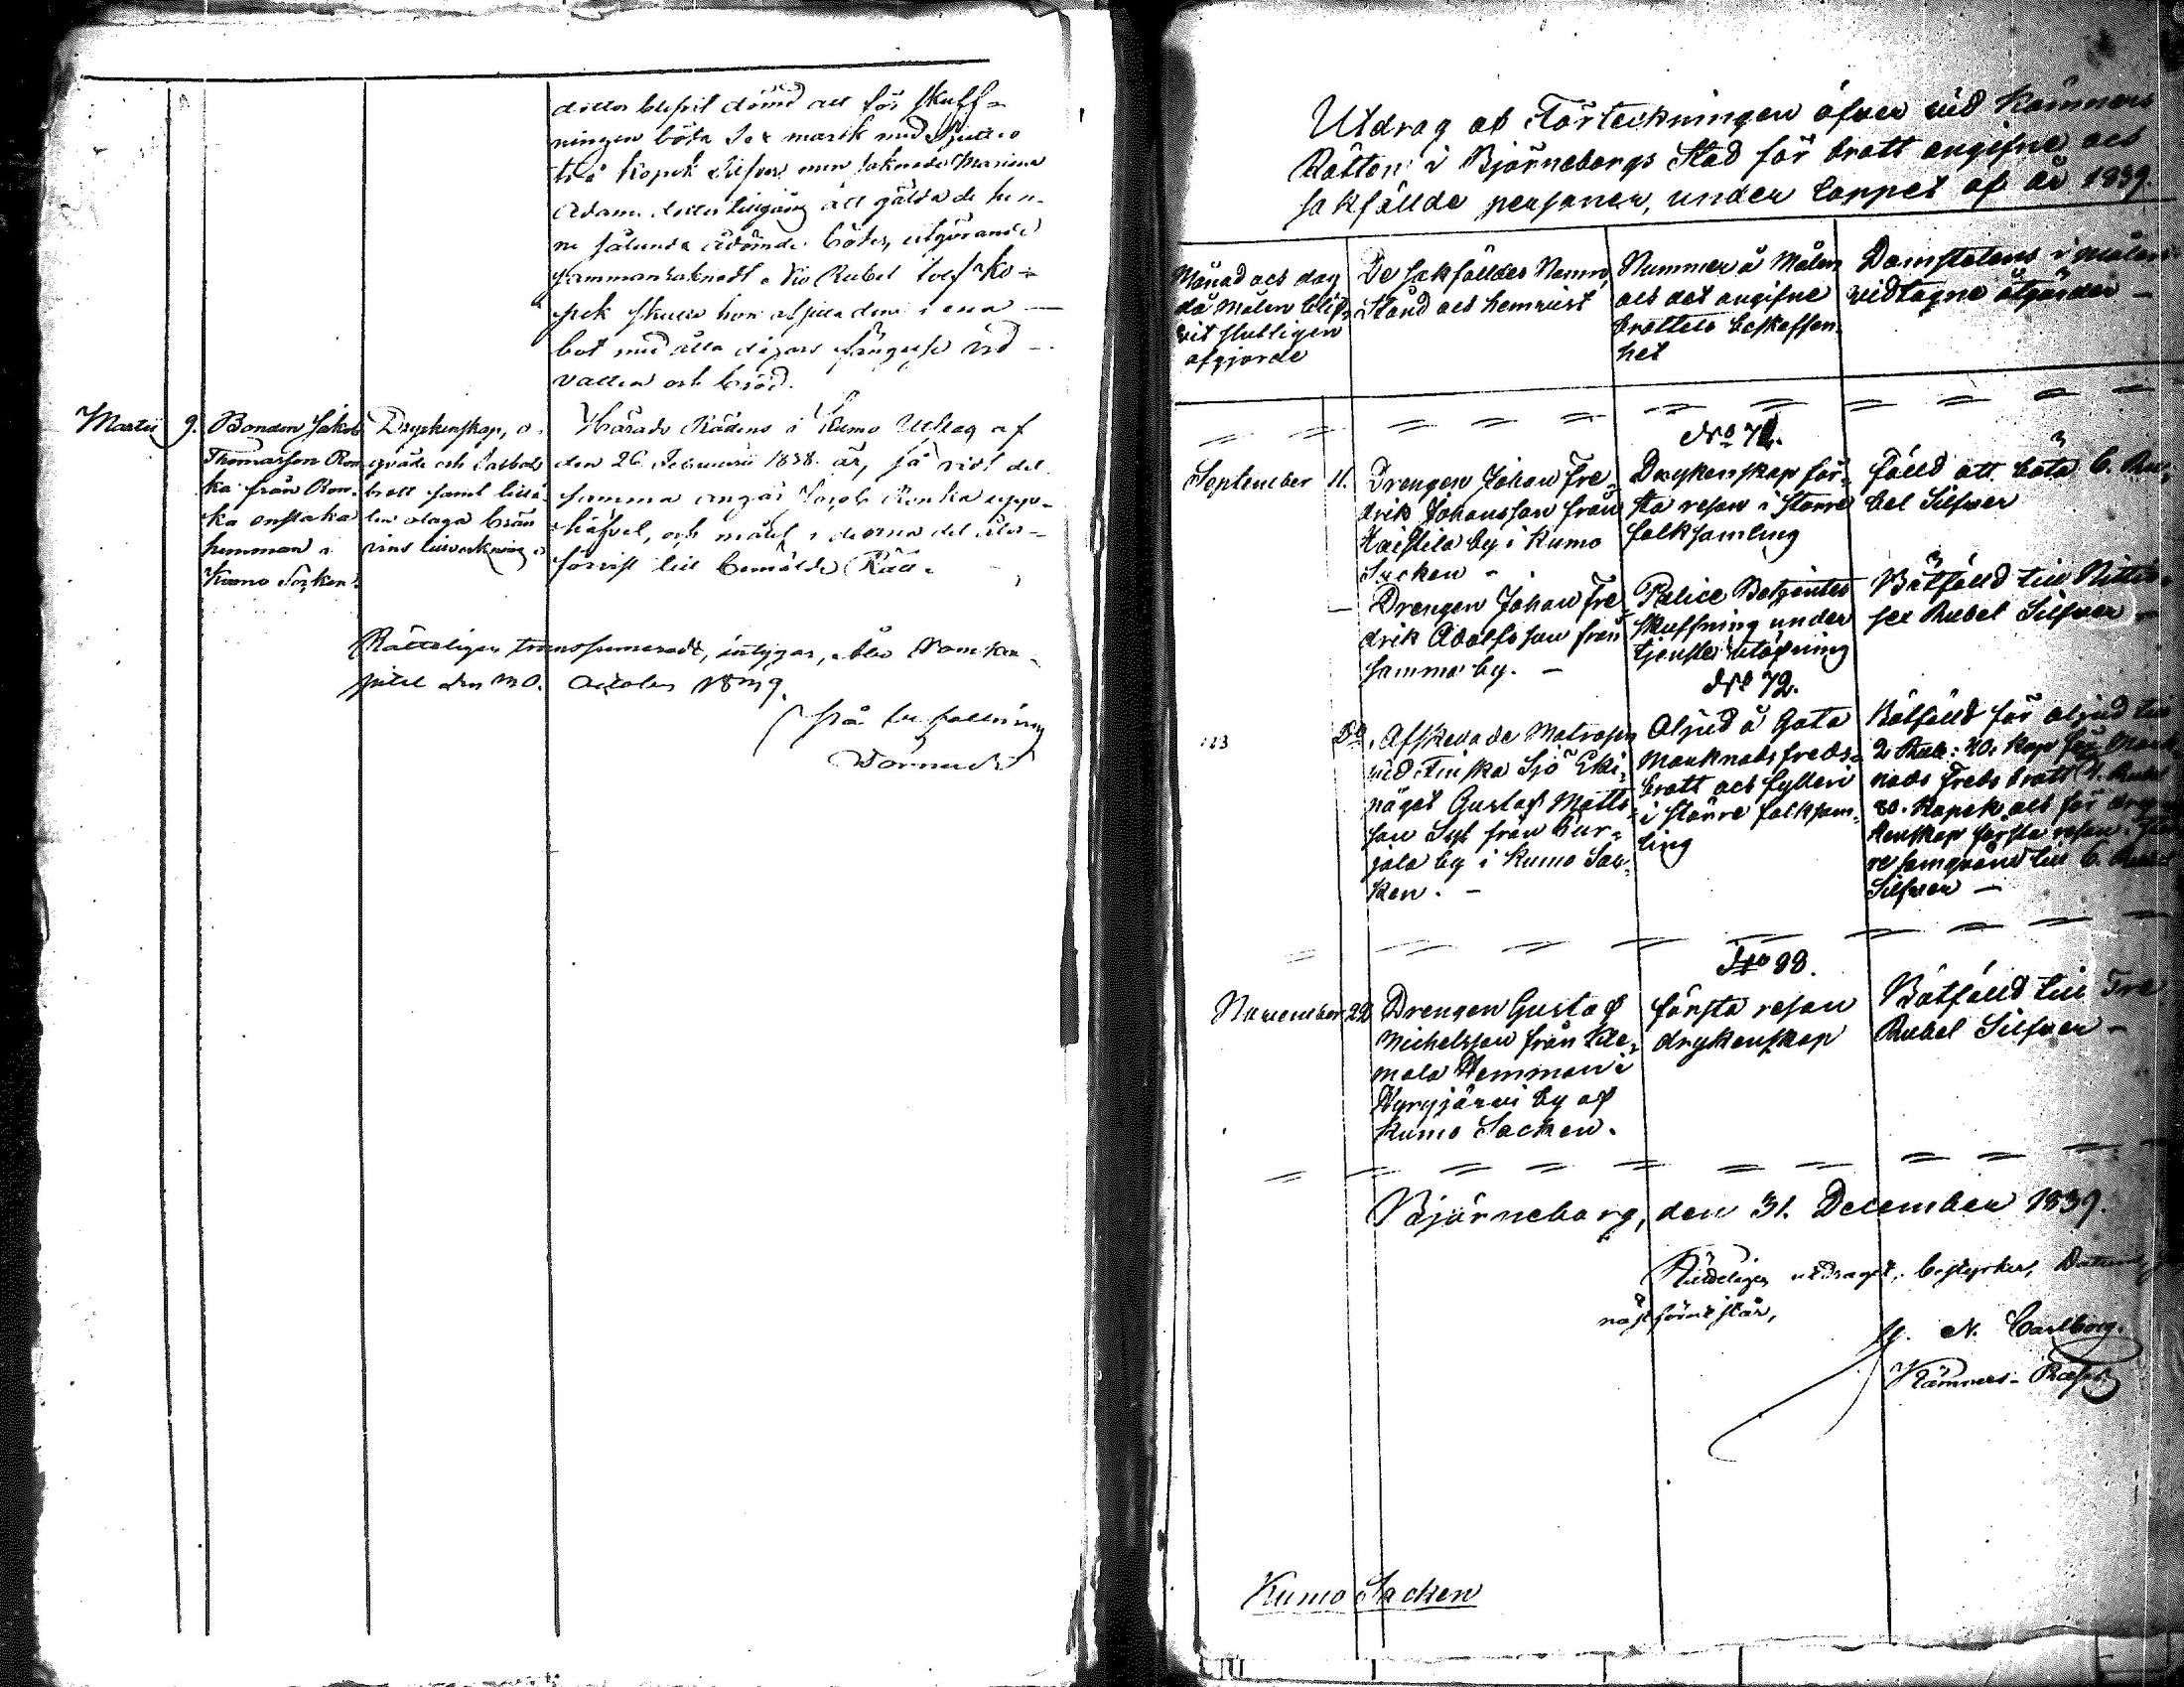 dotter blifvit dömd att för skuff-
ningen böta Sex mark med Sjutio
två kopek Silfver men saknade Maria
Adams dotter tillgång att gälda de hen-
ne sålunda ådömde böter, utgörande
sammanräknadt Tio Rubel tolf Ko-
pek skulle hon afplia dem i ena
bot med åtta dygns fängelse vid
vatten och bröd.
Martii 9. Bonden Jakob
Thomasson Ron-
ka från Ron-
ka enstaka
hemman i
Kumo Socken.
Dryckenskap, o-
qväde och Sabbats
brott samt
olaga brän-
vins tillverkning
Härads Rättens i Kumo Utslag af
den 26 Februarii 1838. är, så vidt det
samma angår Jacob Ronka upp-
häfvet, och målet i denna del åter-
förvist till bemälde Rätt.
Rätteligen transsumeradt, intygar, Åbo
den 30. October 1839.
På befallning
Utdrag af Förteckningen öfver vid Kämners
Rätten i Björneborgs Stad för brott angifne och
sakfällde personer, under loppet af år 1839.
Månad och dag
då målen blif-
vit slutligen
afgjorde
De sakfälldes Namn,
Stånd och hemvist
Nummer å Målen
och det angifne
brottets beskaffen-
het
Domstolens i målen
vidtagne åtgärder
No 71.
September 11. Drengen Johan Fre-
drik Johansson från
by i Kumo
Socken
Dryckenskap för-
sta resan i större
folksamling
Fälld att böta 6. Ru-
bel Silfver
Drengen Johan Fre-
drik Adolfsson från
samma by.
Police Betjentes
skuffning under
tjenstes utöfning
Bötfälld till
sex Rubel Silfver
No 72.
Do. Afskedade Matrosen
vid Finska Sjö Eki-
paget Gustaf Matts-
son från
by i Kumo Soc-
ken.
Oljud å Gata
Marknads freds-
brott och fylleri
i större folksam-
ling
Bötfälld för oljud till
2 Rub: 40. kop för Mark-
nads Freds brott 4. Rubel
80. Kopek och för dryc-
kenskap första resan i stör-
re samqväm till 6. Rubel
Silfver
No 88.
November 22 Drengen Gustaf
Michelsson från
Hemman i
by af
Kumo Socken.
första resan
dryckenskap
Bötfälld till Tre
Rubel Silfver
Björneborg, den 31. December 1839.
utdraget, bestyrker, Datum,
som förut står,
N. Carlborg.
Kämners-Præses
Kumo Socken